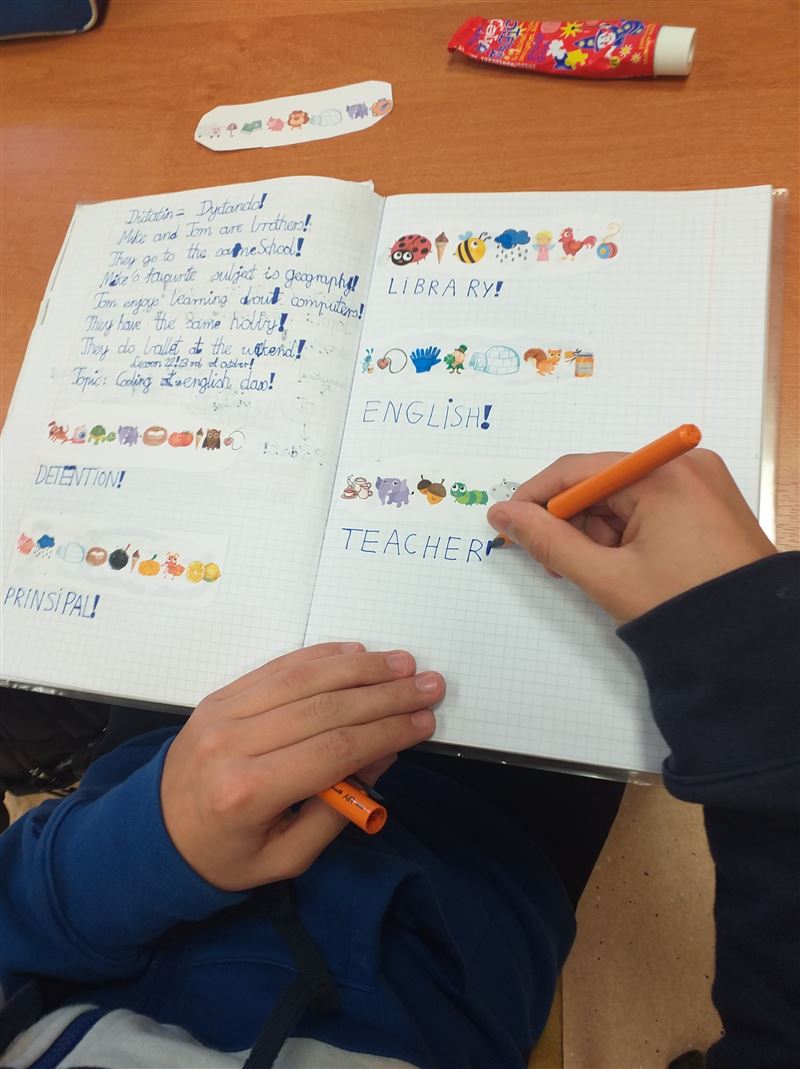 Dictatin = Dyktando!
Mike and Tom are brothers!
They go to the same School!
Mike's favourite subject is geography!
Tom enjoys learning about computers!
They have the same hobby!
They do ballet at the weekend!
Lesson 22! 23rd of october!
Topic: Coding at english class!
DETENTION!
PRINSIPAL!
LIBRARY!
ENGLISH!
TEACHER!